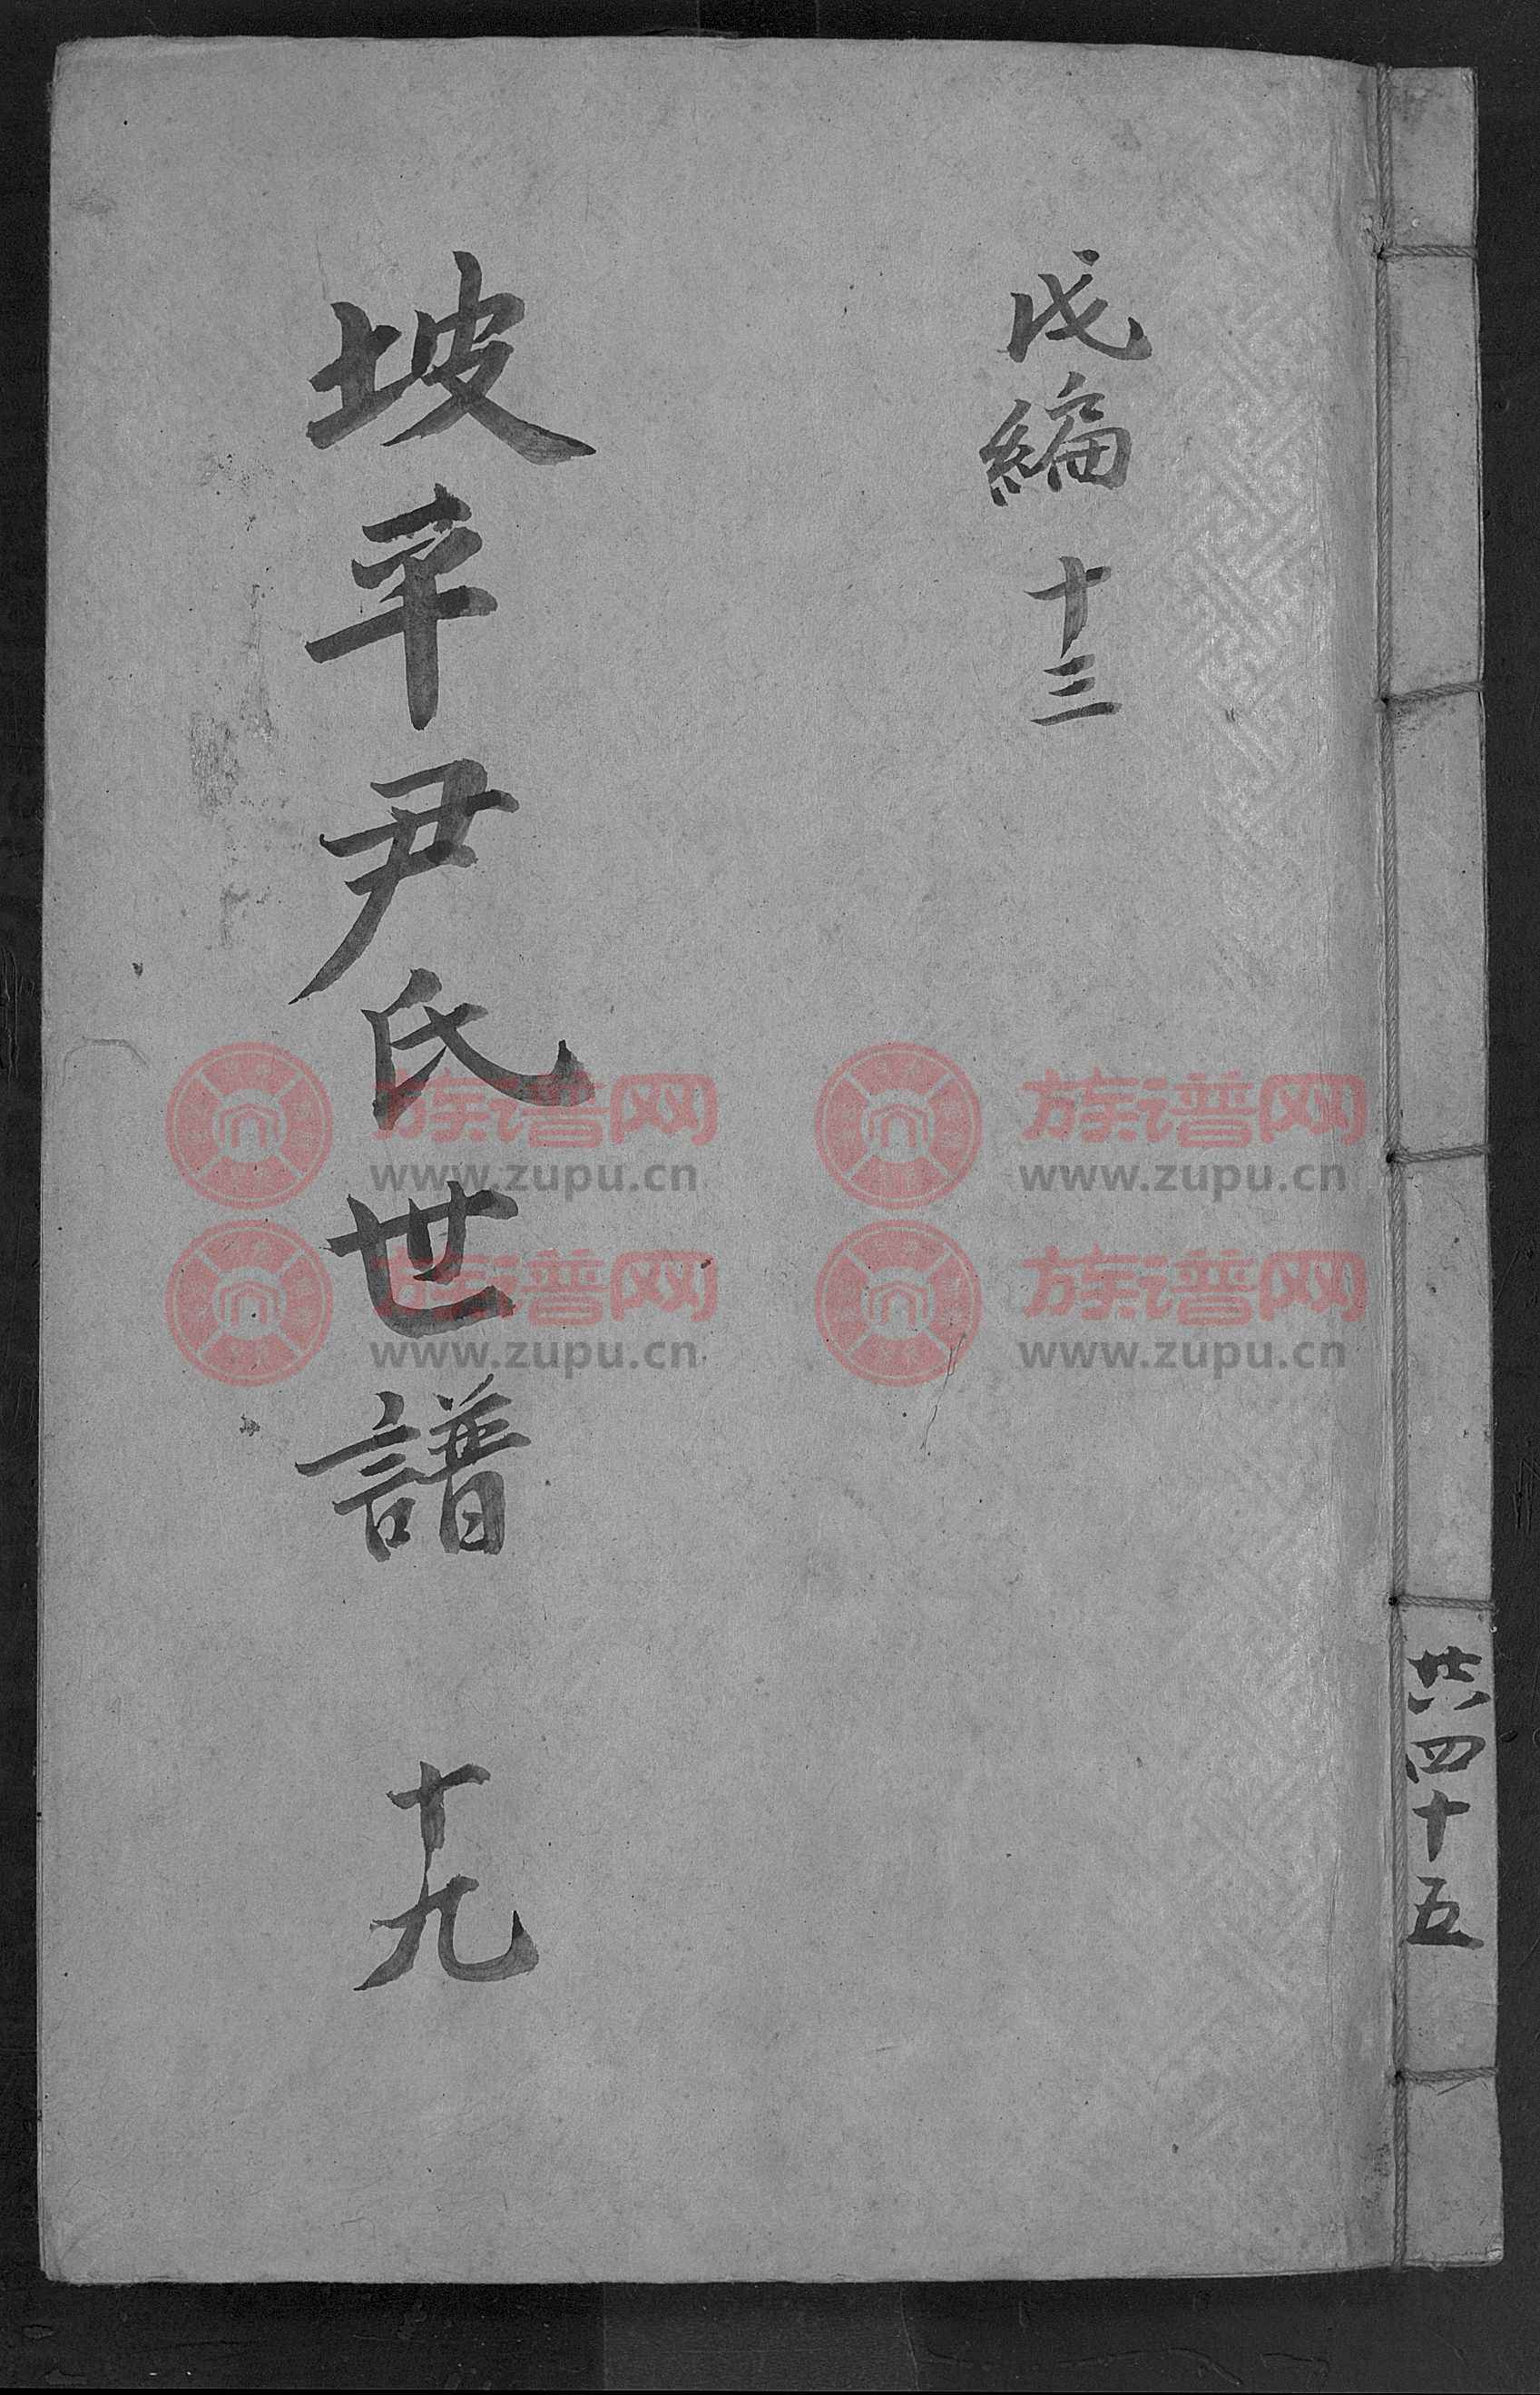 戊編 十三
坡平尹氏世譜 十九
共四十五
族谱网
www.zupu.cn
族谱网
www.zupu.cn
族谱网
www.zupu.cn
族谱网
www.zupu.cn